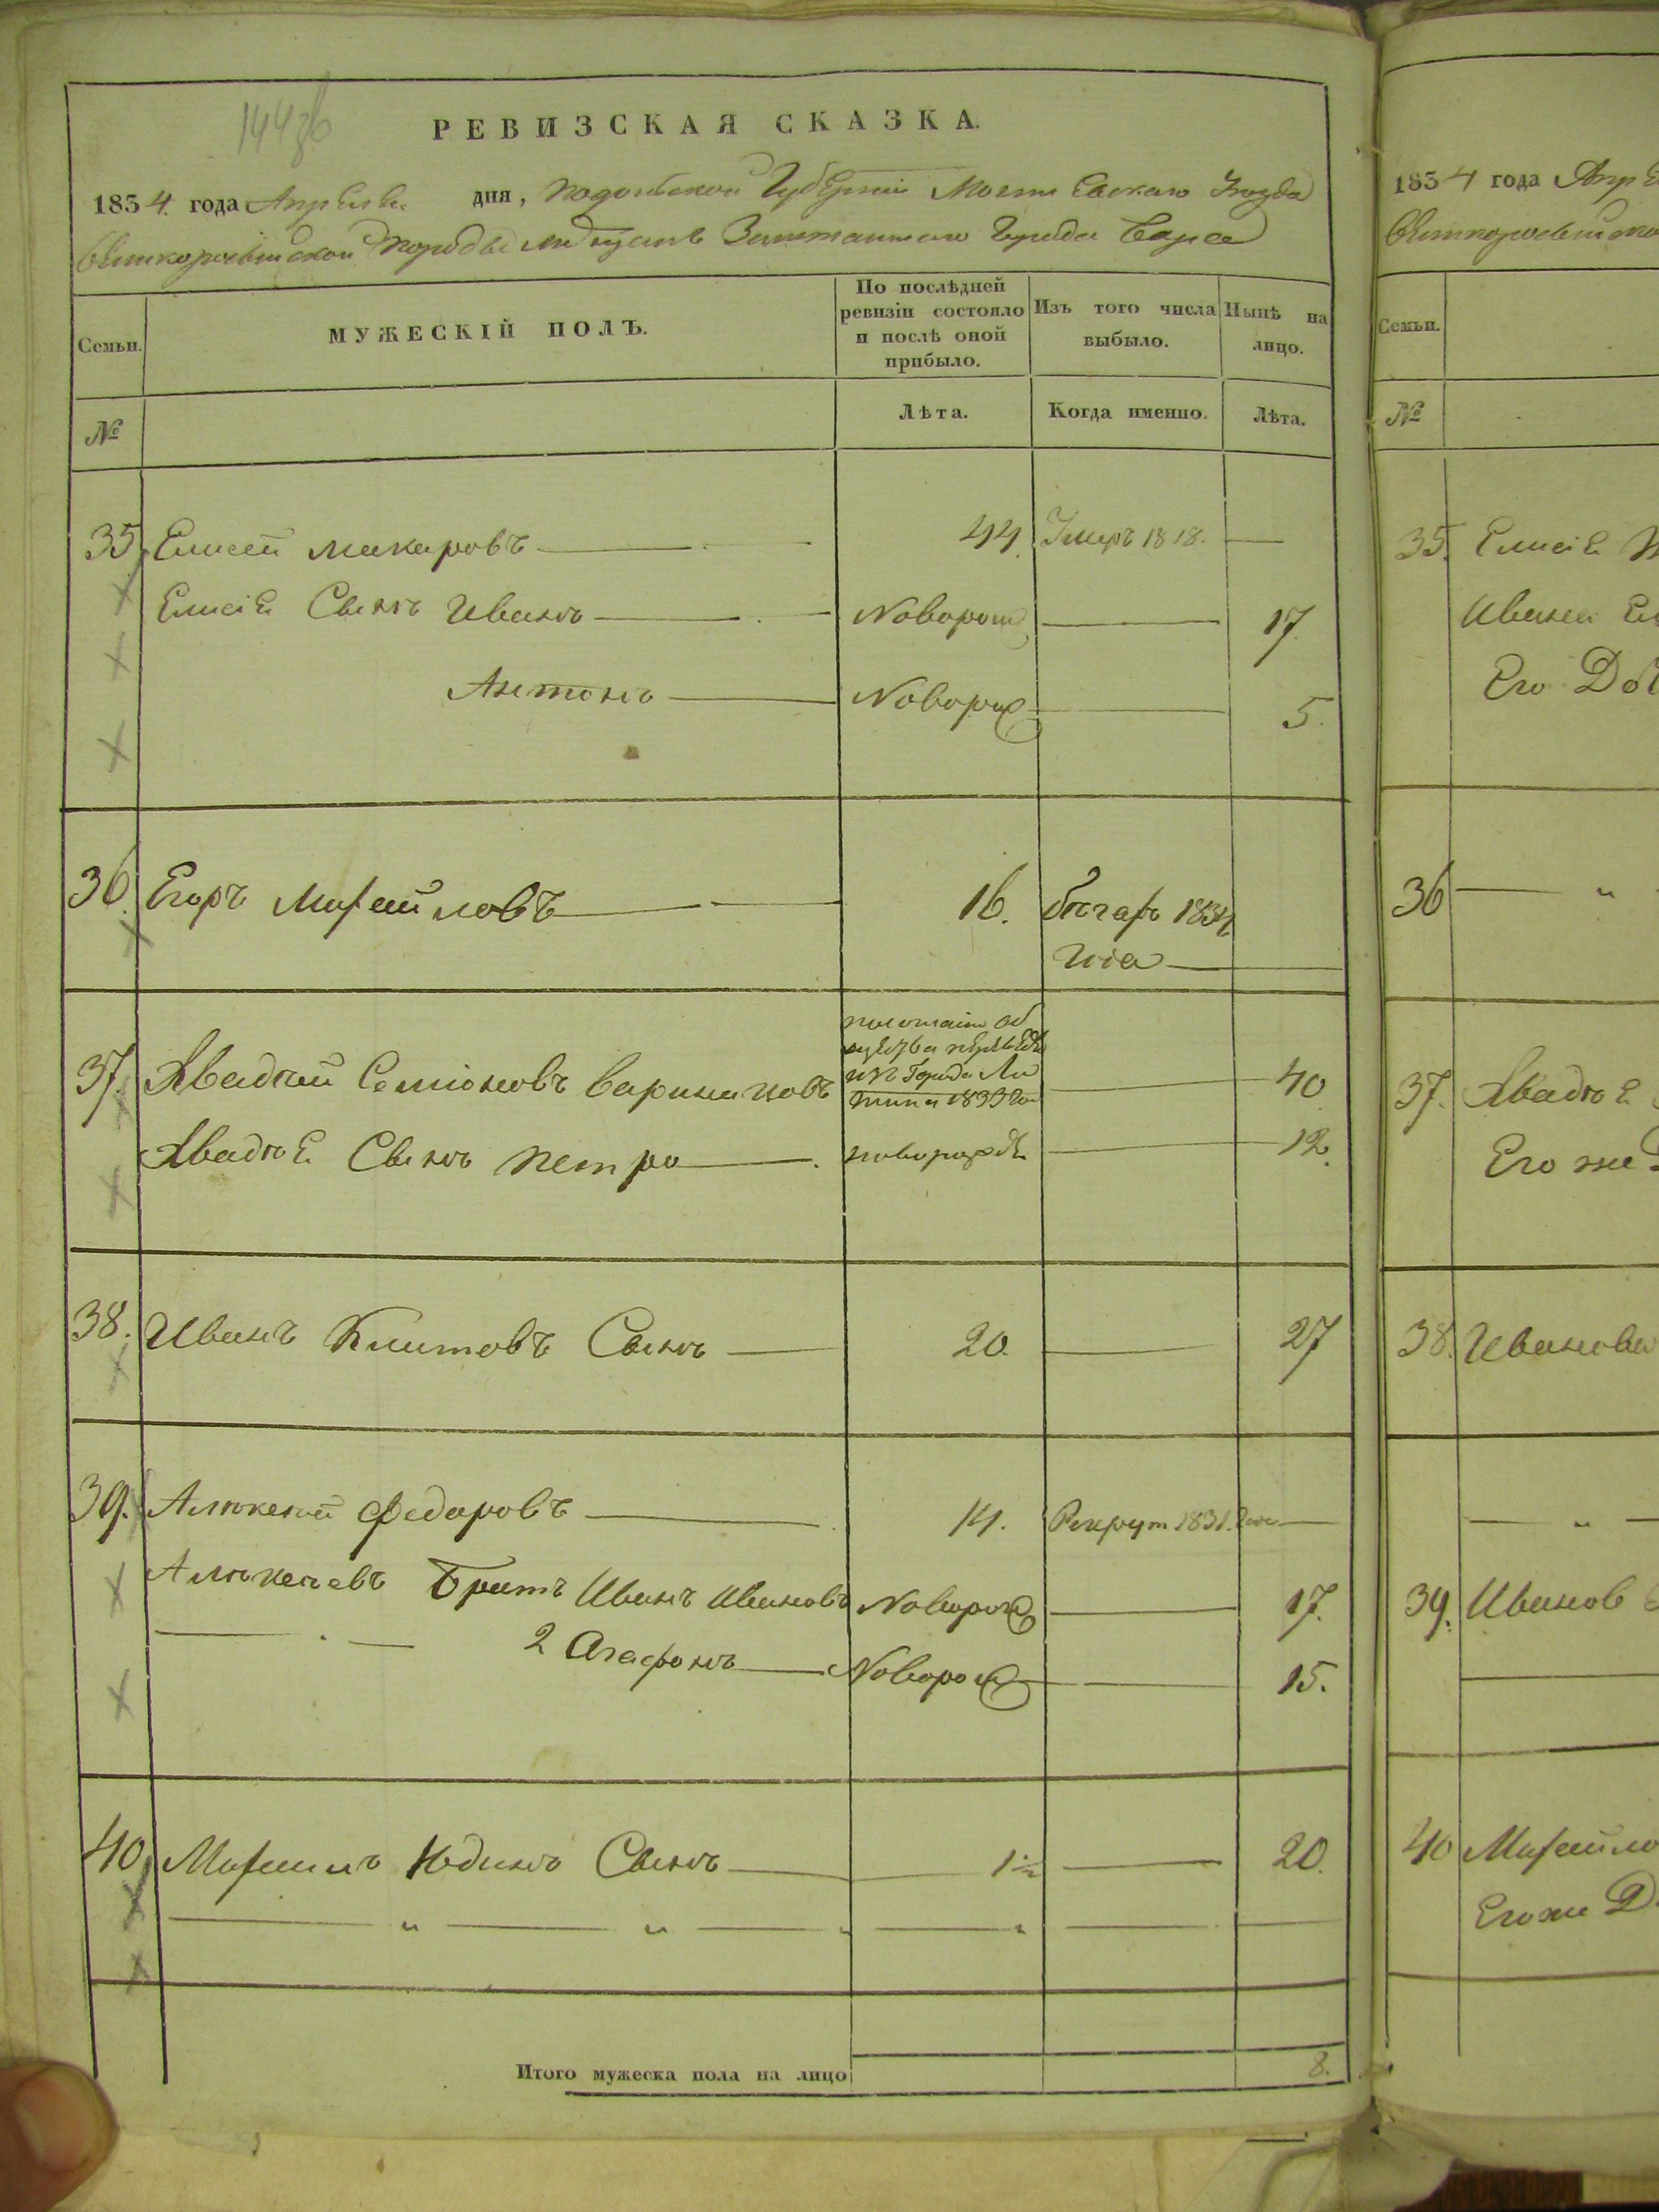 144
РЕВИЗСКАЯ СКАЗКА.
1834. года Апреля дня, подольской Губернии Могилевскаго Уезда
великоросийской породы мещанъ Заштатнаго Города Бара
Семьи. МУЖЕСКІЙ ПОЛЪ. По послѣдней ревизіи состояло и послѣ оной прибыло. Изъ того числа выбыло. Нынѣ на лицо.
№ Лѣта. Когда именно. Лѣта.
35 Елисей макаровъ 44. Умеръ 1818.
Елисіе Сынъ Иванъ Новорож 17.
Антонъ Новорож 5.
36. Егоръ Михайловъ 16. 1834
37. Авадкей Семіоновъ 40
из Города 1833
Авадке Сынъ петро новорожде 12.
38. Иванъ Сынъ 20. 27
39. Алюксей Федоровъ 14. Рекрут 1831. года
Алюксеевъ Братъ Иванъ Ивановъ Новорож 17.
2 Агафонъ Новорож 15.
40 Михаилъ Юдинъ Сынъ 1½ 20.
Итого мужеска пола на лицо 8.
1834 года Апре
Семьи.
№
35. Елисіе
Ивана
Его
36 "
37. Авадке
Его же
38. Иванова
"
39. Иванов
40 Михайло
Егоже